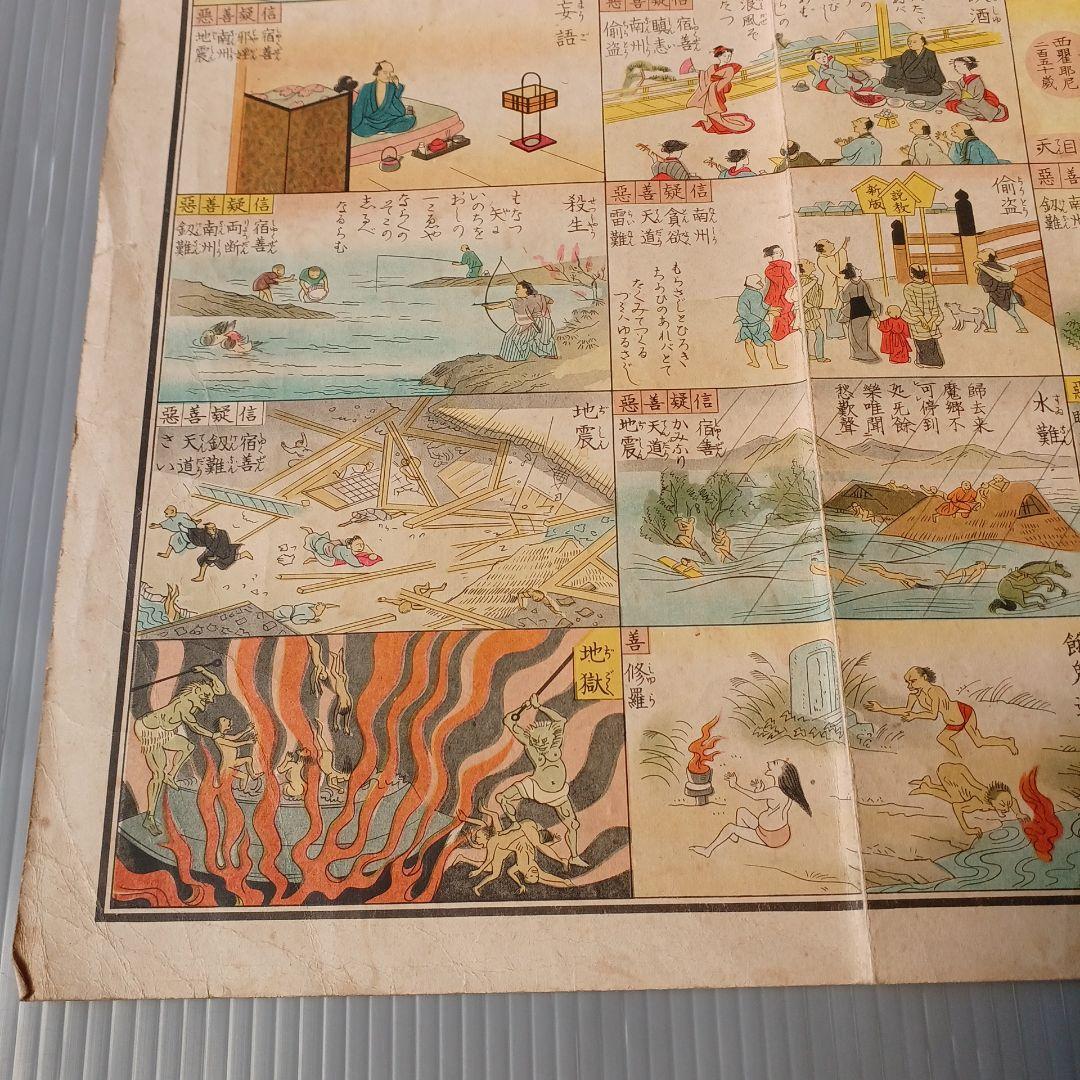 惡善疑信
宿善
南州
地震
妄語
惡善疑信
宿善
瞋恚
南州
偷盗
酒
西瞿耶尼
二百五十歳
惡善疑信
宿善
両断
南州
釼難
殺生
せつしやう
もなつ
矢に
いのちを
おしの
こゑや
ならくの
そこの
志るべ
なるらむ
惡善疑信
南州
貪欲
天道
雷難
偷盗
新版
説教
もらさじとひろき
ちかひのあれバとて
たくみてつくる
つミハゆるさじ
惡善疑信
宿善
釼難
天道
さい
地震
ぢしん
惡善疑信
宿善
かみふり
天道
地震
歸去来
魔郷不
可停到
処无餘
樂唯聞
愁歎聲
水難
地獄
ぢごく
善
修羅
しゆら